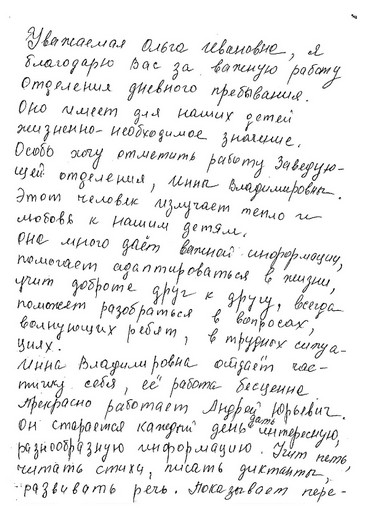 Уважаемая Ольга Ивановна, я
благодарю Вас за важную работу
Отделения дневного пребывания.
Оно имеет для наших детей
жизненно-необходимое значение.
Особо хочу отметить работу Заведую-
щей отделения, Инны Владимировны.
Этот человек излучает тепло и
любовь к нашим детям.
Она много даёт важной информации,
помогает адаптироваться в жизни,
учит доброте друг к другу, всегда
поможет разобраться в вопросах,
волнующих ребят, в трудных ситуа-
циях.
Инна Владимировна отдаёт час-
тичку себя, её работа бесценна
Прекрасно работает Андрей Юрьевич.
Он старается каждый день дать интересную,
разнообразную информацию. Учит петь,
читать стихи, писать диктанты,
развивать речь. Показывает пере-